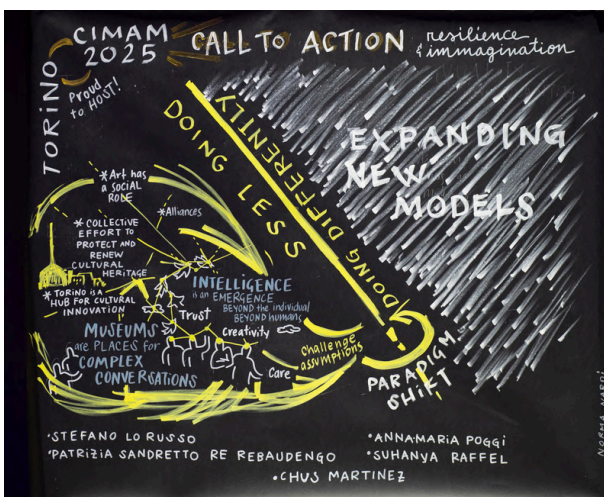 TORINO
CIMAM
2025
Proud
to HOST!
CALL TO ACTION
resilience
& immagination
DOING LESS
DOING DIFFERENTLY
EXPANDING
NEW
MODELS
*Art has
a social
ROLE
*Alliances
* COLLECTIVE
EFFORT TO
PROTECT AND
RENEW
CULTURAL
HERITAGE
* TORINO IS A
HUB FOR CULTURAL
INNOVATION
INTELLIGENCE
is an EMERGENCE
BEYOND the individual
BEYOND humans
Trust
Creativity
MUSEUMS
are PLACES for
COMPLEX
CONVERSATIONS
Care
Challenge
assumptions
PARADIGM
SHIFT
•STEFANO LO RUSSO
•PATRIZIA SANDRETTO RE REBAUDENGO
•ANNAMARIA POGGI
•SUHANYA RAFFEL
•CHUS MARTINEZ
NORMA NARDI